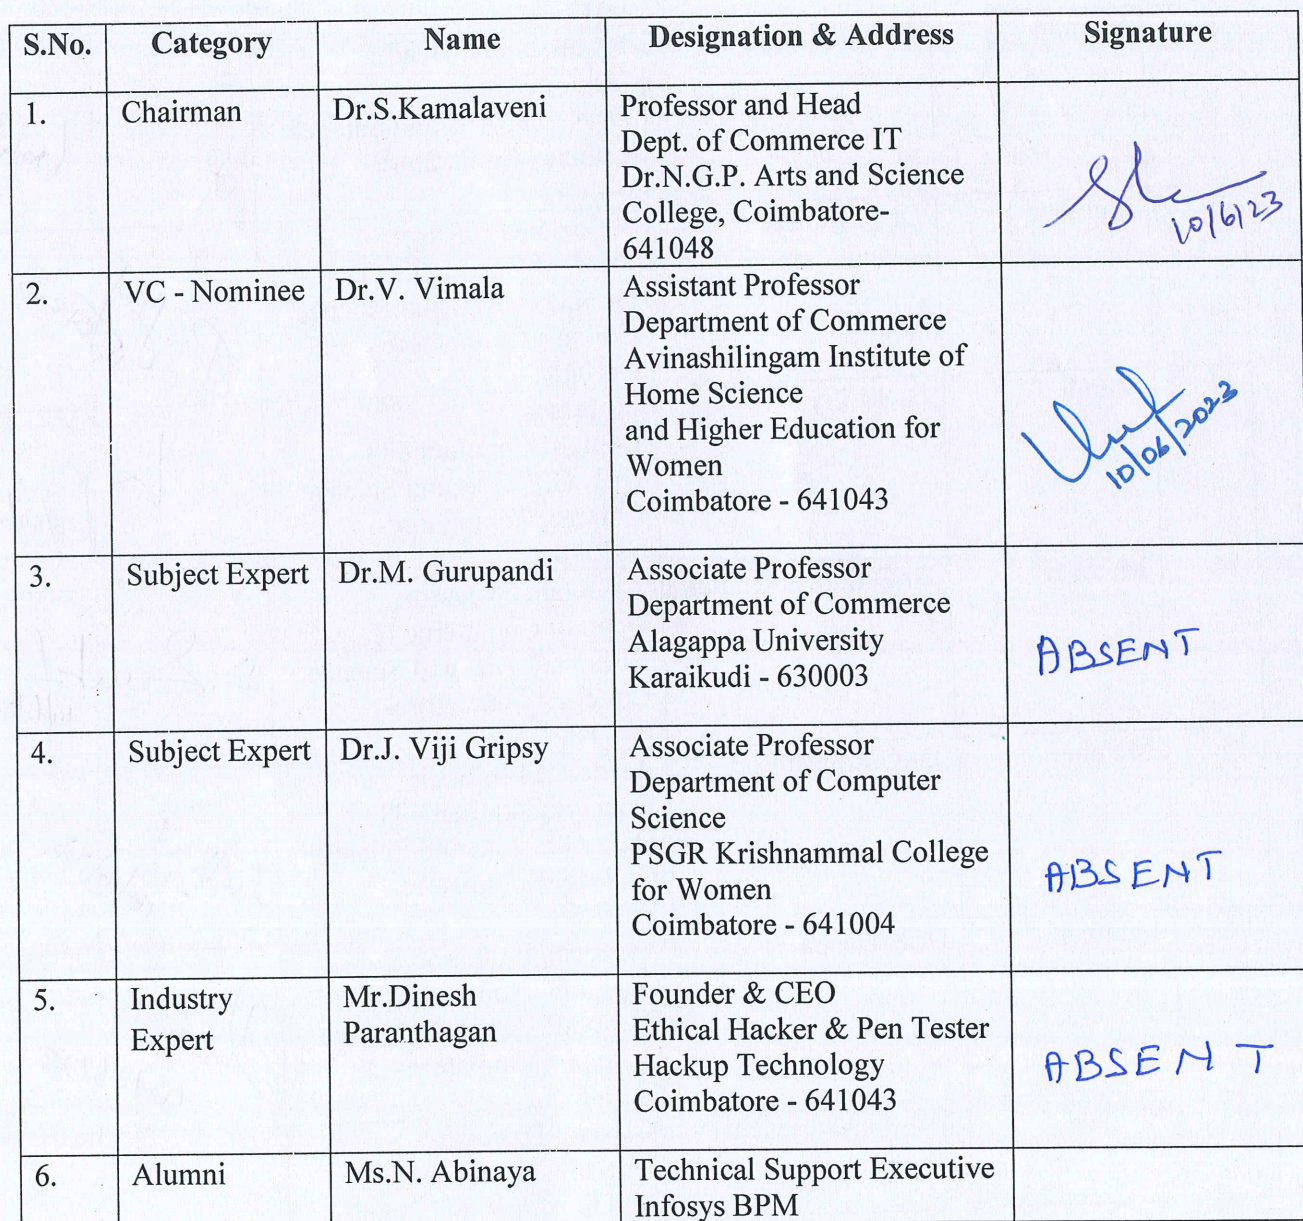 S.No. Category Name Designation & Address Signature
1. Chairman Dr.S.Kamalaveni Professor and Head
Dept. of Commerce IT
Dr.N.G.P. Arts and Science
College, Coimbatore-
641048
10/6/23
2. VC - Nominee Dr.V. Vimala Assistant Professor
Department of Commerce
Avinashilingam Institute of
Home Science
and Higher Education for
Women
Coimbatore - 641043
10/06/2023
3. Subject Expert Dr.M. Gurupandi Associate Professor
Department of Commerce
Alagappa University
Karaikudi - 630003
ABSENT
4. Subject Expert Dr.J. Viji Gripsy Associate Professor
Department of Computer
Science
PSGR Krishnammal College
for Women
Coimbatore - 641004
ABSENT
5. Industry Mr.Dinesh Founder & CEO
Expert Paranthagan Ethical Hacker & Pen Tester
Hackup Technology
Coimbatore - 641043
ABSENT
6. Alumni Ms.N. Abinaya Technical Support Executive
Infosys BPM